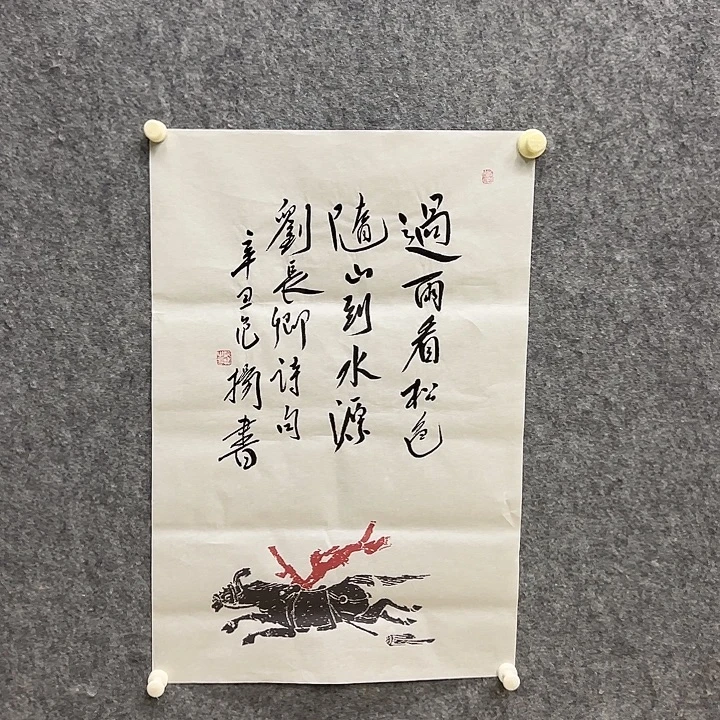 過雨看松色
隨山到水源
劉長卿詩句
辛丑 書